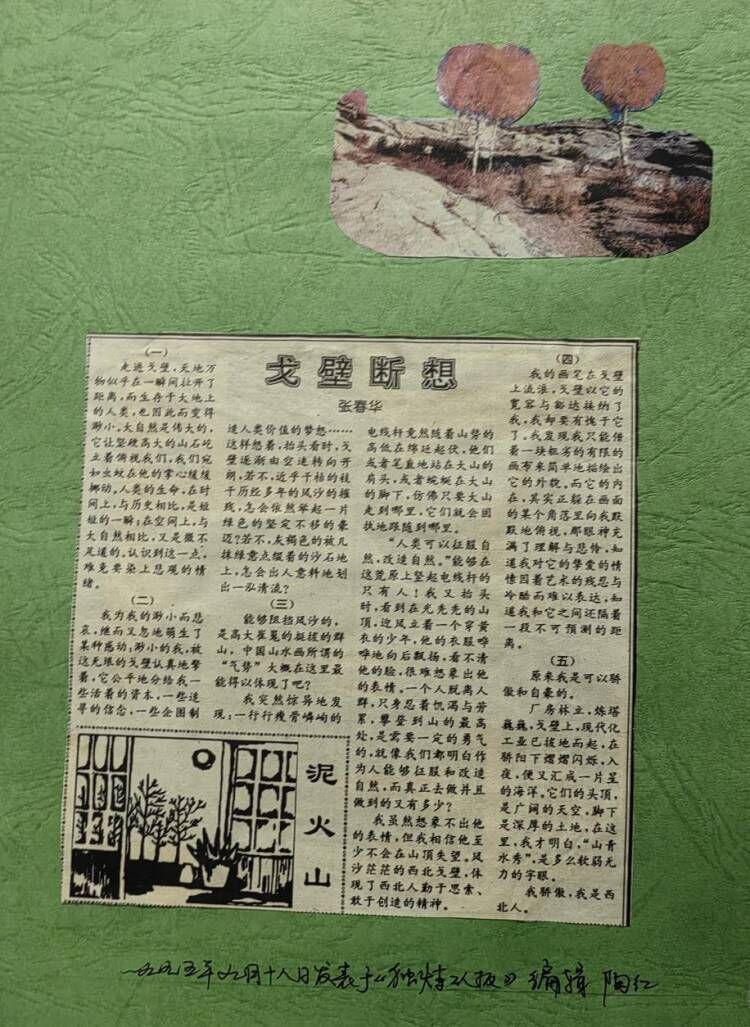 戈壁断想
张春华
(一)
走进戈壁,天地万
物似乎在一瞬间拉开了
距离,而生存于大地上
的人类,也因此而变得
渺小。大自然是伟大的,
它让坚硬高大的山石屹
立着俯视我们,我们宛
如虫蚊在他的掌心缓缓
挪动。人类的生命,在时
间上,与历史相比,是短
短的一瞬;在空间上,与
大自然相比,又是微不
足道的。认识到这一点,
难免要染上悲观的情
绪。
(二)
我为我的渺小而悲
哀,继而又忽地萌生了
某种感动;渺小的我,被
这无垠的戈壁认真地擎
着,它公平地分给我一
些活着的资本,一些追
寻的信念,一些企图制
造人类价值的梦想……
这样想着,抬头看时,戈
壁逐渐由空迷转向开
朗,若不,近乎干枯的枝
干历经多年的风沙的摧
残,怎会依然举起一片
绿色的坚定不移的豪
迈?若不,灰褐色的被几
抹绿意点缀着的沙石地
上,怎会出人意料地划
出一泓清流?
(三)
能够阻挡风沙的,
是高大崔嵬的挺拔的群
山,中国山水画所谓的
“气势”大概在这里最
能得以体现了吧?
我突然惊异地发
现:一行行瘦骨嶙峋的
电线杆竟然随着山势的
高低在绵延起伏,他们
或者笔直地站在大山的
肩头,或者蜿蜒在大山
的脚下,仿佛只要大山
走到哪里,它们就会固
执地跟随到哪里。
“人类可以征服自
然,改造自然。”能够在
这荒原上竖起电线杆的
只有人!我又抬头
时,看到在光秃秃的山
顶,迎风立着一个穿黄
衣的少年,他的衣服哗
哗地向后飘扬,看不清
他的脸,很难想象出他
的表情。一个人脱离人
群,只身忍着饥渴与劳
累,攀登到山的最高
处,是需要一定的勇气
的,就像我们都明白作
为人能够征服和改造
自然,而真正去做并且
做到的又有多少?
我虽然想象不出他
的表情,但我相信他至
少不会在山顶失望。风
沙茫茫的西北戈壁,体
现了西北人勤于思索、
敢于创造的精神。
(四)
我的画笔在戈壁
上流浪,戈壁以它的
宽容与豁达接纳了
我,我却要有愧于它
了。我发现我只能借
着一块粗劣的有限的
画布来简单地描绘出
它的外貌。而它的内
在,其实正躲在画面
的某个角落里向我默
默地俯视,那眼神充
满了理解与悲怜,知
道我对它的挚爱的情
愫因着艺术的残忍与
冷酷而难以表达,知
道我和它之间还隔着
一段不可预测的距
离。
(五)
原来我是可以骄
傲和自豪的。
厂房林立,炼塔
巍巍,戈壁上,现代化
工业已拔地而起,在
骄阳下熠熠闪烁,入
夜,便又汇成一片星
的海洋。它们的头顶,
是广阔的天空,脚下
是深厚的土地,在这
里,我才明白,“山青
水秀”,是多么软弱无
力的字眼。
我骄傲,我是西
北人。
泥火山
一九九五年九月十八日发表于《独炼工人报》编辑 陶红